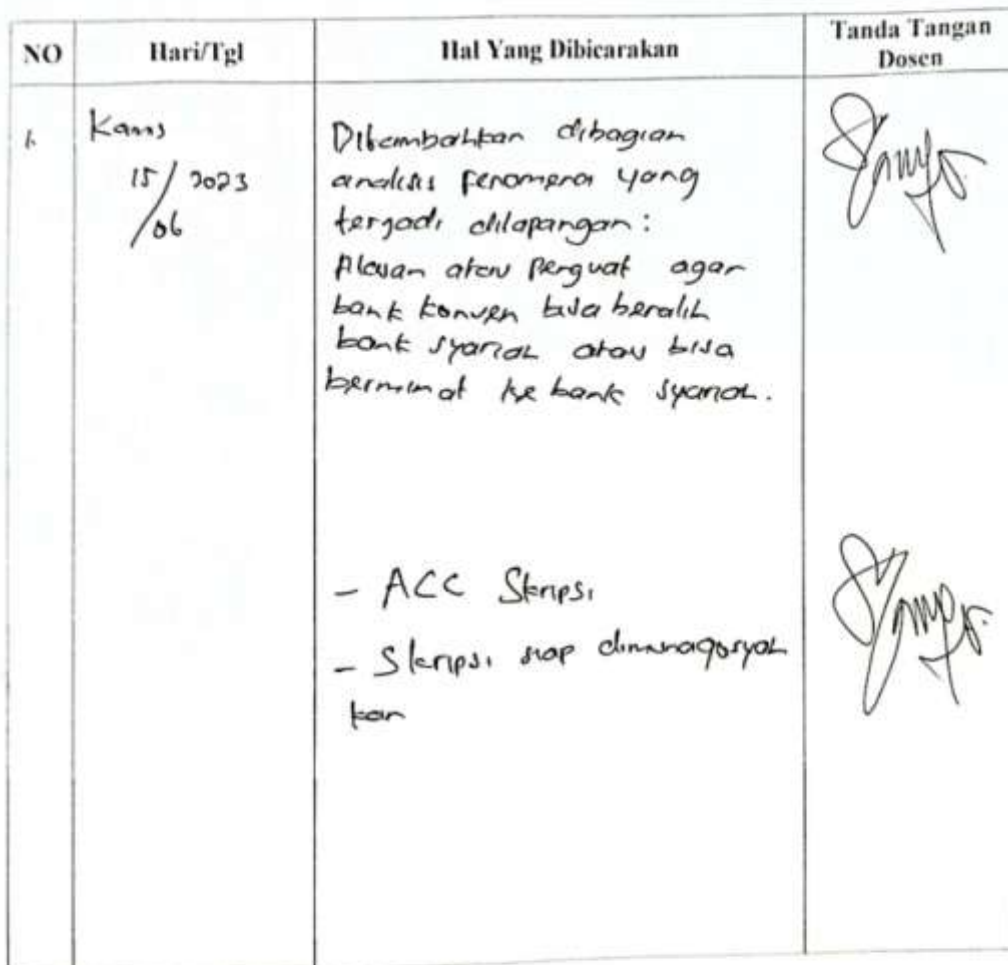 NO
Hari/Tgl
Hal Yang Dibicarakan
Tanda Tangan
Dosen
1.
Kamis
15/2023
/06
Ditambahkan dibagian
analisis fenomena yang
terjadi dilapangan:
Alasan atau penguat agar
bank konven bisa beralih
bank syariah atau bisa
berminat ke bank syariah.
- ACC Skripsi
- Skripsi siap dimunaqosyah
kan